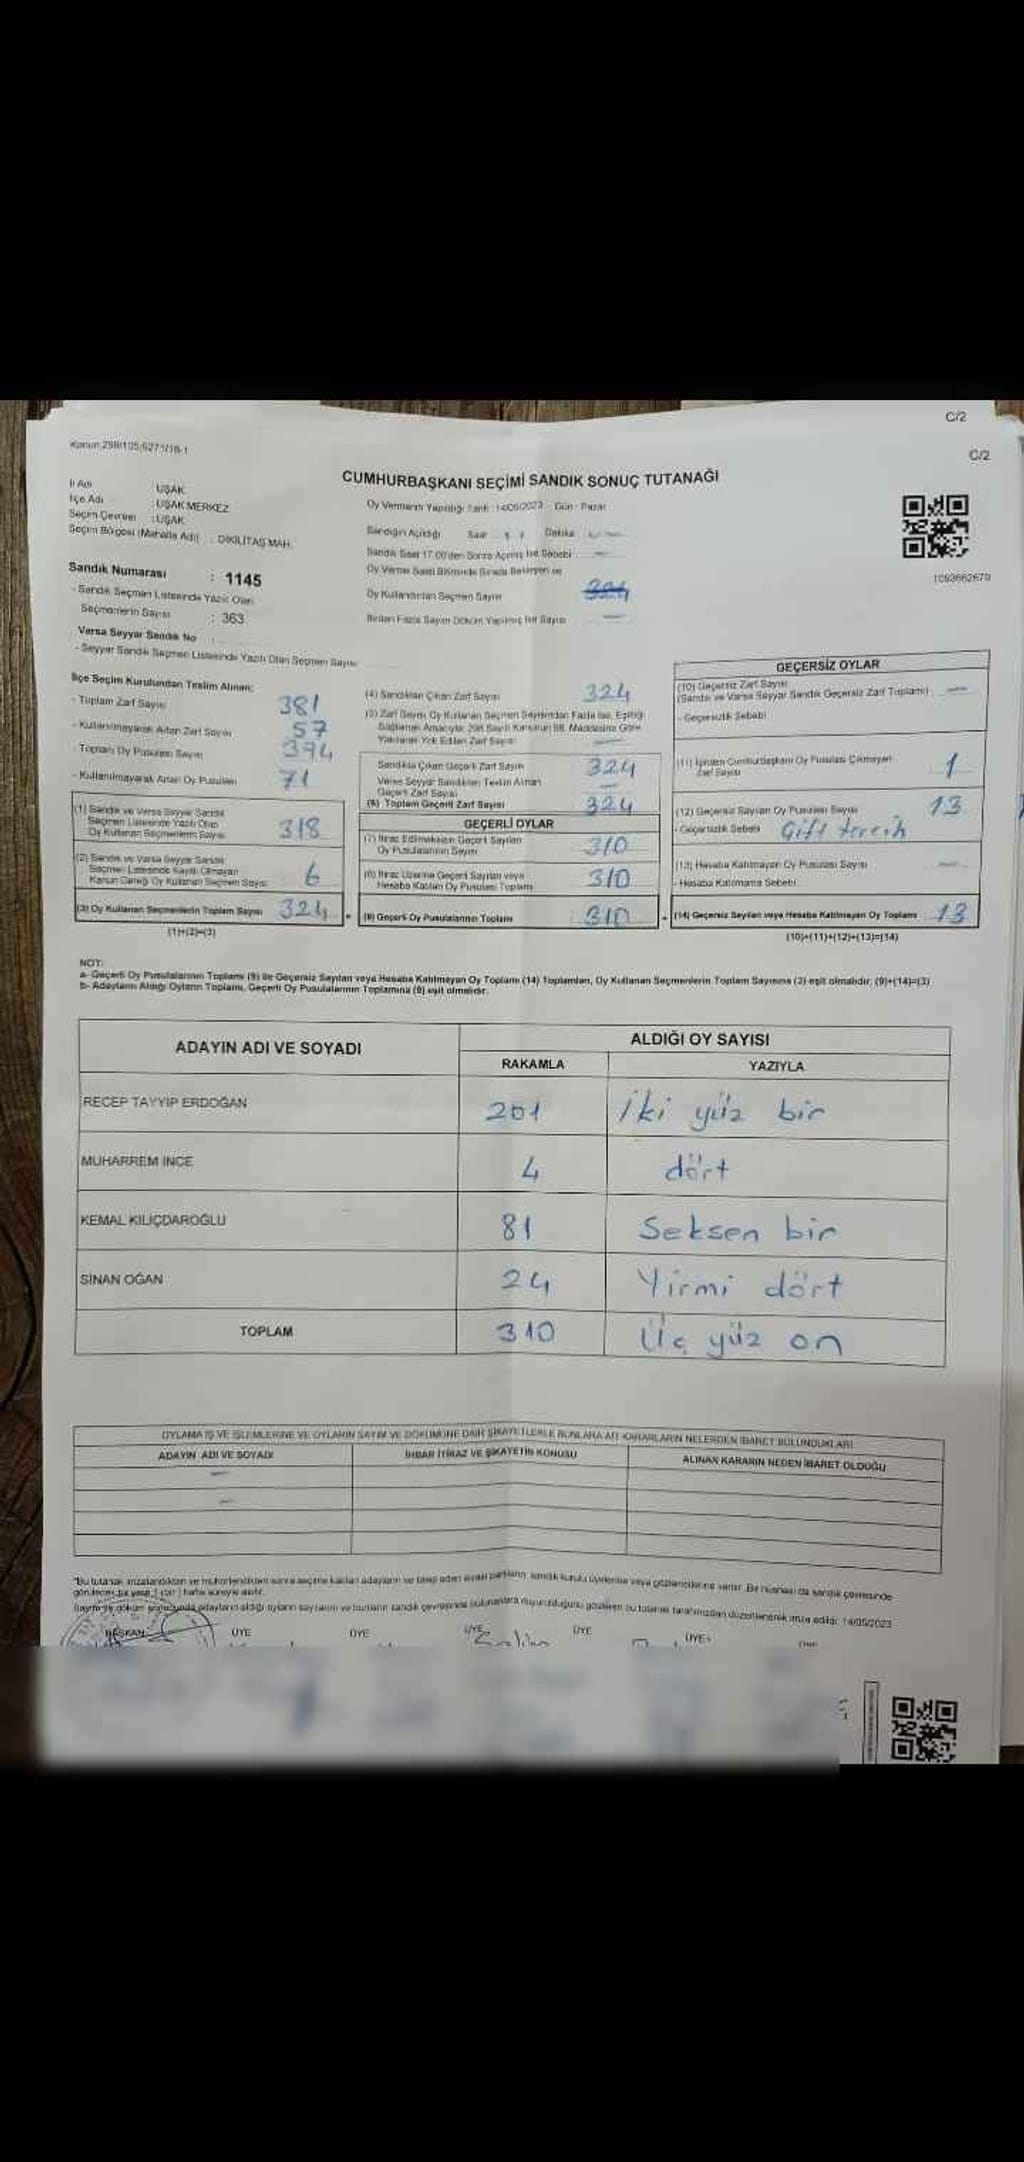 C/2
C/2
Kanun:298/105;6271/18-1
CUMHURBAŞKANI SEÇİMİ SANDIK SONUÇ TUTANAĞI
İl Adı : UŞAK
İlçe Adı : UŞAK MERKEZ
Seçim Çevresi : UŞAK
Seçim Bölgesi (Mahalle Adı) : DİKİLİTAŞ MAH.
Oy Vermenin Yapıldığı Tarih : 14/05/2023 Gün : Pazar
Sandığın Açıldığı Saat Dakika
Sandık Saat 17:00'den Sonra Açılmış İse Sebebi :
Oy Verme Saati Bitiminde Sırada Bekleyen ve
Oy Kullandırılan Seçmen Sayısı 324
Birden Fazla Sayım Döküm Yapılmış İse Sayısı
1093662679
Sandık Numarası : 1145
- Sandık Seçmen Listesinde Yazılı Olan
Seçmenlerin Sayısı : 363
Varsa Seyyar Sandık No :
- Seyyar Sandık Seçmen Listesinde Yazılı Olan Seçmen Sayısı
İlçe Seçim Kurulundan Teslim Alınan;
- Toplam Zarf Sayısı 381
- Kullanılmayarak Artan Zarf Sayısı 57
- Toplam Oy Pusulası Sayısı 394
- Kullanılmayarak Artan Oy Pusulası 71
(1) Sandık ve Varsa Seyyar Sandık
Seçmen Listesinde Yazılı Olup
Oy Kullanan Seçmenlerin Sayısı 318
(2) Sandık ve Varsa Seyyar Sandık
Seçmen Listesinde Kayıtlı Olmayan
Kanun Gereği Oy Kullanan Seçmen Sayısı 6
(3) Oy Kullanan Seçmenlerin Toplam Sayısı 324
(1)+(2)=(3)
(4) Sandıktan Çıkan Zarf Sayısı 324
(5) Zarf Sayısı Oy Kullanan Seçmen Sayısından Fazla İse, Eşitliği
Sağlamak Amacıyla; 298 Sayılı Kanunun 98. Maddesine Göre
Yakılarak Yok Edilen Zarf Sayısı
Sandıkta Çıkan Geçerli Zarf Sayısı 324
Varsa Seyyar Sandıktan Teslim Alınan
Geçerli Zarf Sayısı
(6) Toplam Geçerli Zarf Sayısı 324
GEÇERLİ OYLAR
(7) İtiraz Edilmeksizin Geçerli Sayılan
Oy Pusulalarının Sayısı 310
(8) İtiraz Üzerine Geçerli Sayılan veya
Hesaba Katılan Oy Pusulası Toplamı 310
(9) Geçerli Oy Pusulalarının Toplamı 310
GEÇERSİZ OYLAR
(10) Geçersiz Zarf Sayısı
(Sandık ve Varsa Seyyar Sandık Geçersiz Zarf Toplamı)
- Geçersizlik Sebebi
(11) İçinden Cumhurbaşkanı Oy Pusulası Çıkmayan
Zarf Sayısı 1
(12) Geçersiz Sayılan Oy Pusulası Sayısı 13
- Geçersizlik Sebebi Çift tercih
(13) Hesaba Katılmayan Oy Pusulası Sayısı
- Hesaba Katılmama Sebebi
(14) Geçersiz Sayılan veya Hesaba Katılmayan Oy Toplamı 13
(10)+(11)+(12)+(13)=(14)
NOT:
a- Geçerli Oy Pusulalarının Toplamı (9) ile Geçersiz Sayılan veya Hesaba Katılmayan Oy Toplamı (14) Toplamları, Oy Kullanan Seçmenlerin Toplam Sayısına (3) eşit olmalıdır. (9)+(14)=(3)
b- Adayların Aldığı Oyların Toplamı, Geçerli Oy Pusulalarının Toplamına (9) eşit olmalıdır.
ADAYIN ADI VE SOYADI ALDIĞI OY SAYISI
RAKAMLA YAZIYLA
RECEP TAYYİP ERDOĞAN 201 İki yüz bir
MUHARREM İNCE 4 dört
KEMAL KILIÇDAROĞLU 81 Seksen bir
SİNAN OĞAN 24 Yirmi dört
TOPLAM 310 Üç yüz on
OYLAMA İŞ VE İŞLEMLERİNE VE OYLARIN SAYIM VE DÖKÜMÜNE DAİR ŞİKAYETLERLE BUNLARA AİT KARARLARIN NELERDEN İBARET BULUNDUKLARI
ADAYIN ADI VE SOYADI İHBAR İTİRAZ VE ŞİKAYETİN KONUSU ALINAN KARARIN NEDEN İBARET OLDUĞU
"Bu tutanak imzalandıktan ve mühürlendikten sonra seçime katılan adayların ve talep eden siyasi partilerin sandık kurulu üyelerine veya gözlemcilerine verilir. Bir nüshası da sandık çevresinde
görülecek bir yere 1 (bir) hafta süreyle asılır.
Sayım ve döküm sonucunda adayların aldığı oyların sayılarını ve bunların sandık çevresinde bulunanlara duyurulduğunu gösteren bu tutanak tarafımızdan düzenlenerek imza edildi. 14/05/2023
BAŞKAN ÜYE ÜYE ÜYE ÜYE ÜYE